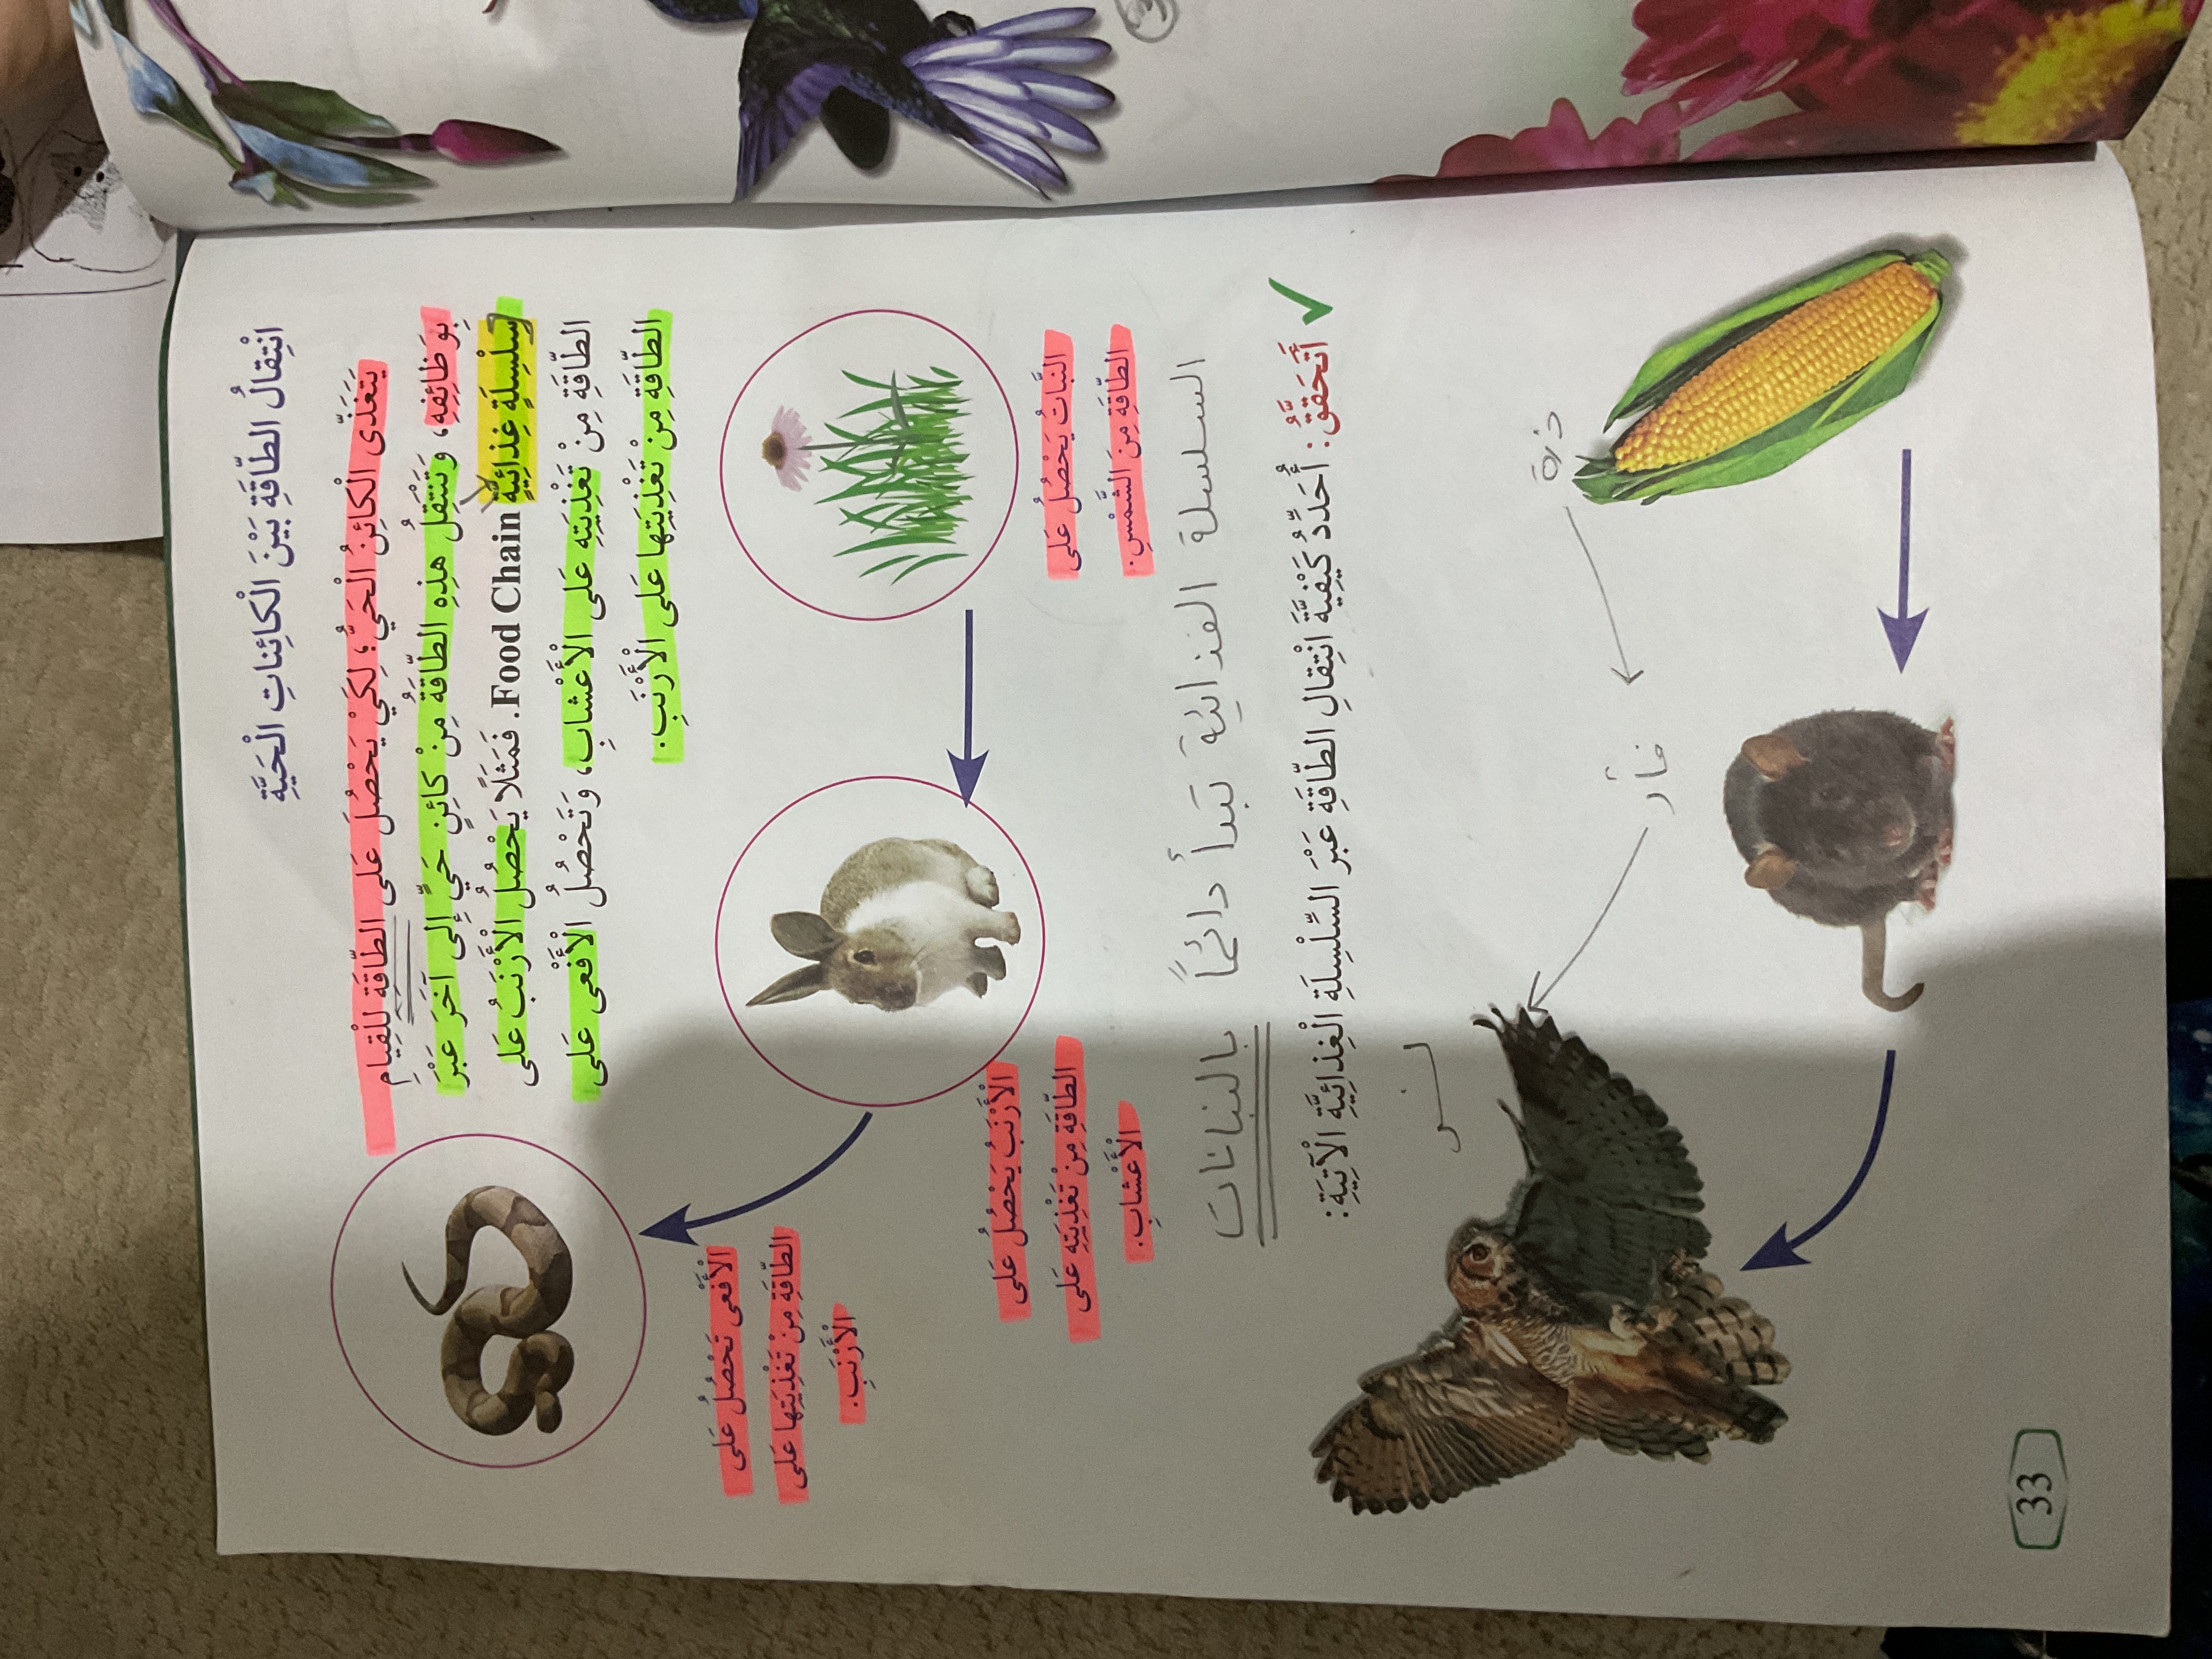 انْتِقالُ الطّاقَةِ بَيْنَ الْكائِناتِ الْحَيَّةِ
يَتَغَذّى الْكائِنُ الْحَيُّ؛ لِكَيْ يَحْصُلَ عَلى الطّاقَةِ لِلْقِيامِ
بِوَظائِفِهِ، وَتَنْتَقِلُ هذِهِ الطّاقَةُ مِنْ كائِنٍ حَيٍّ إِلى آخَرَ عَبْرَ
سِلْسِلَةٍ غِذائِيَّةٍ Food Chain. فَمَثَلًا يَحْصُلُ الْأَرْنَبُ عَلى
الطّاقَةِ مِنْ تَغْذِيَتِهِ عَلى الْأَعْشابِ، وَتَحْصُلُ الْأَفْعى عَلى
الطّاقَةِ مِنْ تَغْذِيَتِها عَلى الْأَرْنَبِ.
النَّباتُ يَحْصُلُ عَلى
الطّاقَةِ مِنَ الشَّمْسِ.
الْأَرْنَبُ يَحْصُلُ عَلى
الطّاقَةِ مِنْ تَغْذِيَتِهِ عَلى
الْأَعْشابِ.
الْأَفْعى تَحْصُلُ عَلى
الطّاقَةِ مِنْ تَغْذِيَتِها عَلى
الْأَرْنَبِ.
السلسلة الغذائية تبدأ دائمًا بالنباتات
أَتَحَقَّقُ: أُحَدِّدُ كَيْفِيَّةَ انْتِقالِ الطّاقَةِ عَبْرَ السِّلْسِلَةِ الْغِذائِيَّةِ الْآتِيَةِ:
ذرة
فأر
نسر
33